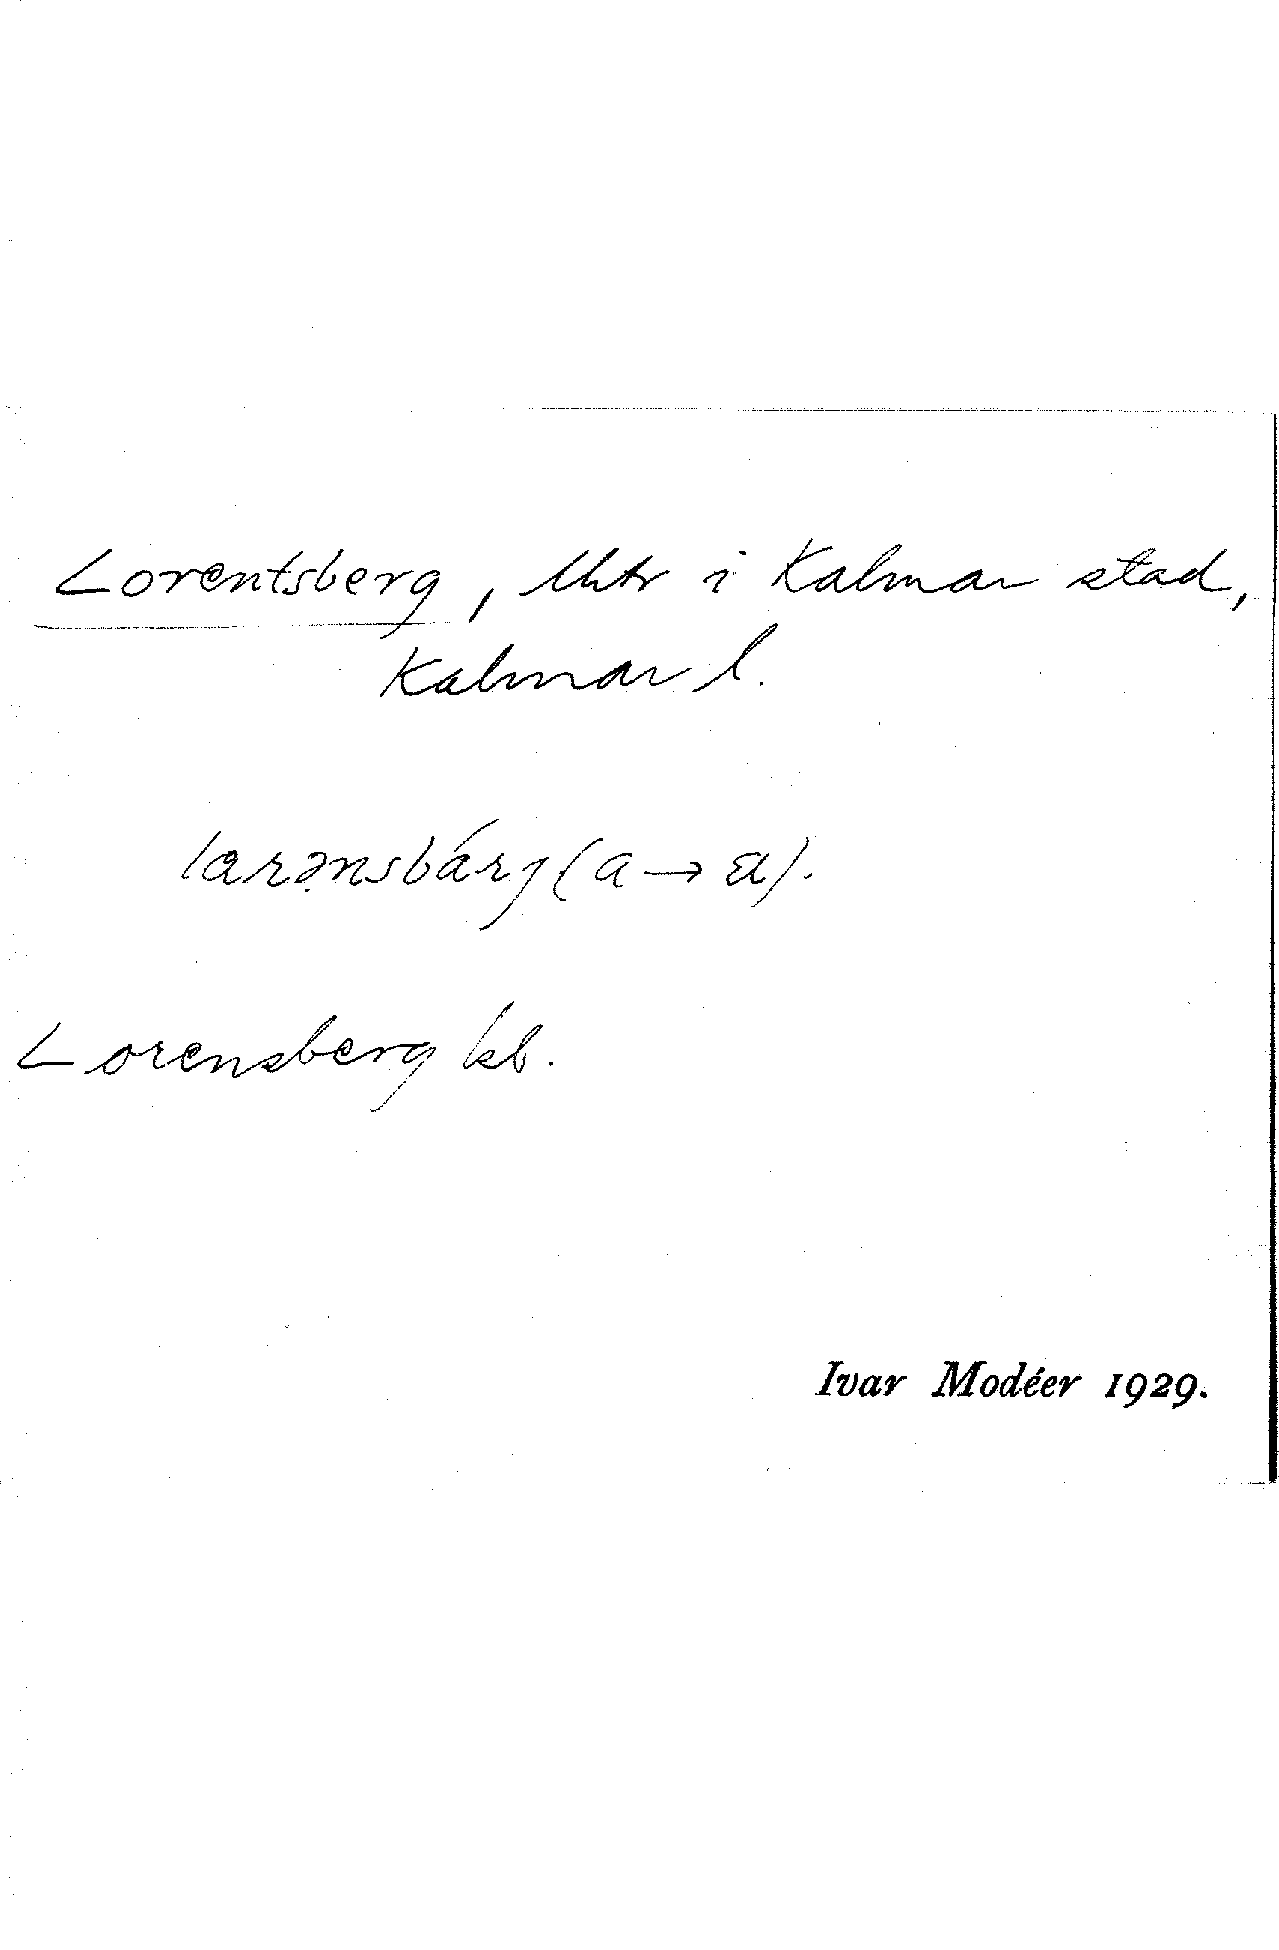 Lorentsberg, lhtr i Kalmar stad,
Kalmar l.
larənsbárg (a → a).
Lorensberg kb.
Ivar Modéer 1929.